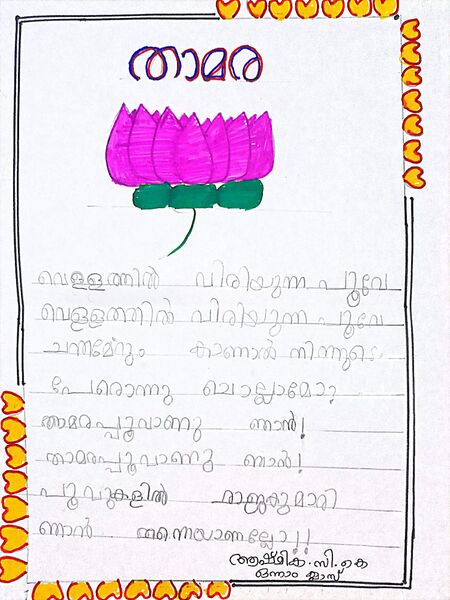 താമര
വെള്ളത്തിൽ വിരിയുന്ന പൂവേ
വെള്ളത്തിൽ വിരിയുന്ന പൂവേ
ചന്തമേറും കാണാൻ നിന്നുടെ
പേരൊന്നു ചൊല്ലാമോ?
താമരപ്പൂവാണു ഞാൻ!
താമരപ്പൂവാണു ഞാൻ!
പൂവുകളിൽ രാജകുമാരി
ഞാൻ തന്നെയാണല്ലോ!!
ആഷ്മിക.സി.കെ
ഒന്നാം ക്ലാസ്